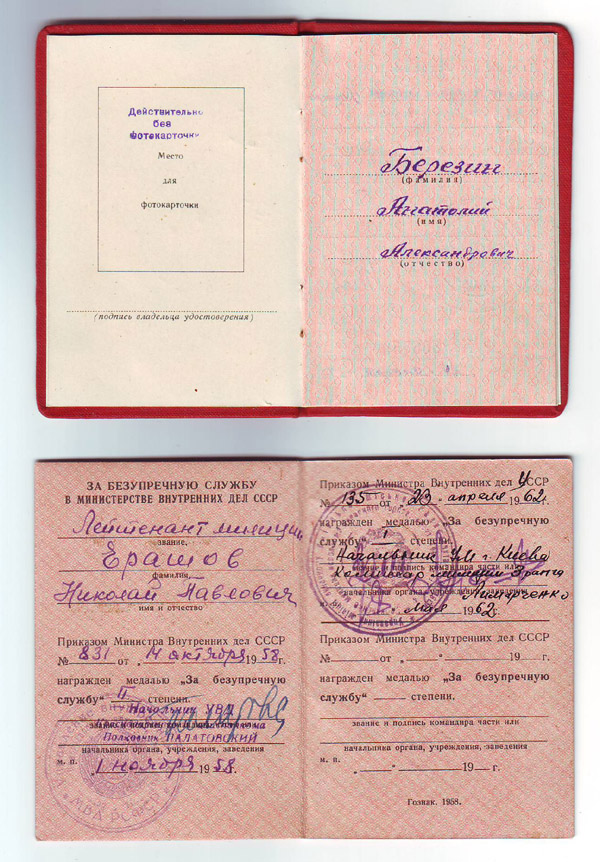 Действительно
без
фотокарточки
Место
для
фотокарточки
(подпись владельца удостоверения)
Березин
(фамилия)
Анатолий
(имя)
Александрович
(отчество)
ЗА БЕЗУПРЕЧНУЮ СЛУЖБУ
В МИНИСТЕРСТВЕ ВНУТРЕННИХ ДЕЛ СССР
Лейтенант милиции
звание,
Ерашов
фамилия,
Николай Павлович
имя и отчество
Приказом Министра Внутренних дел СССР
№ 831 от „14" октября 1958г.
награжден медалью „За безупречную
службу" II степени.
Начальник УВД
Полковник ПАЛАТОВСКИЙ
начальника органа, учреждения, заведения
м. п.
„1" ноября 1958г.
МВД РСФСР
Приказом Министра Внутренних дел УССР
№ 135 от „23" апреля 1962г.
награжден медалью „За безупречную
службу" I степени.
Начальник УМ г. Киева
звание и подпись командира части или
Комиссар милиции 3 ранга
начальника органа, учреждения, заведения
мая 1962г.
Приказом Министра Внутренних дел СССР
№ от „ " 19 г.
награжден медалью „За безупречную
службу" степени.
звание и подпись командира части или
начальника органа, учреждения, заведения
м. п.
„ " 19 г.
Гознак. 1958.